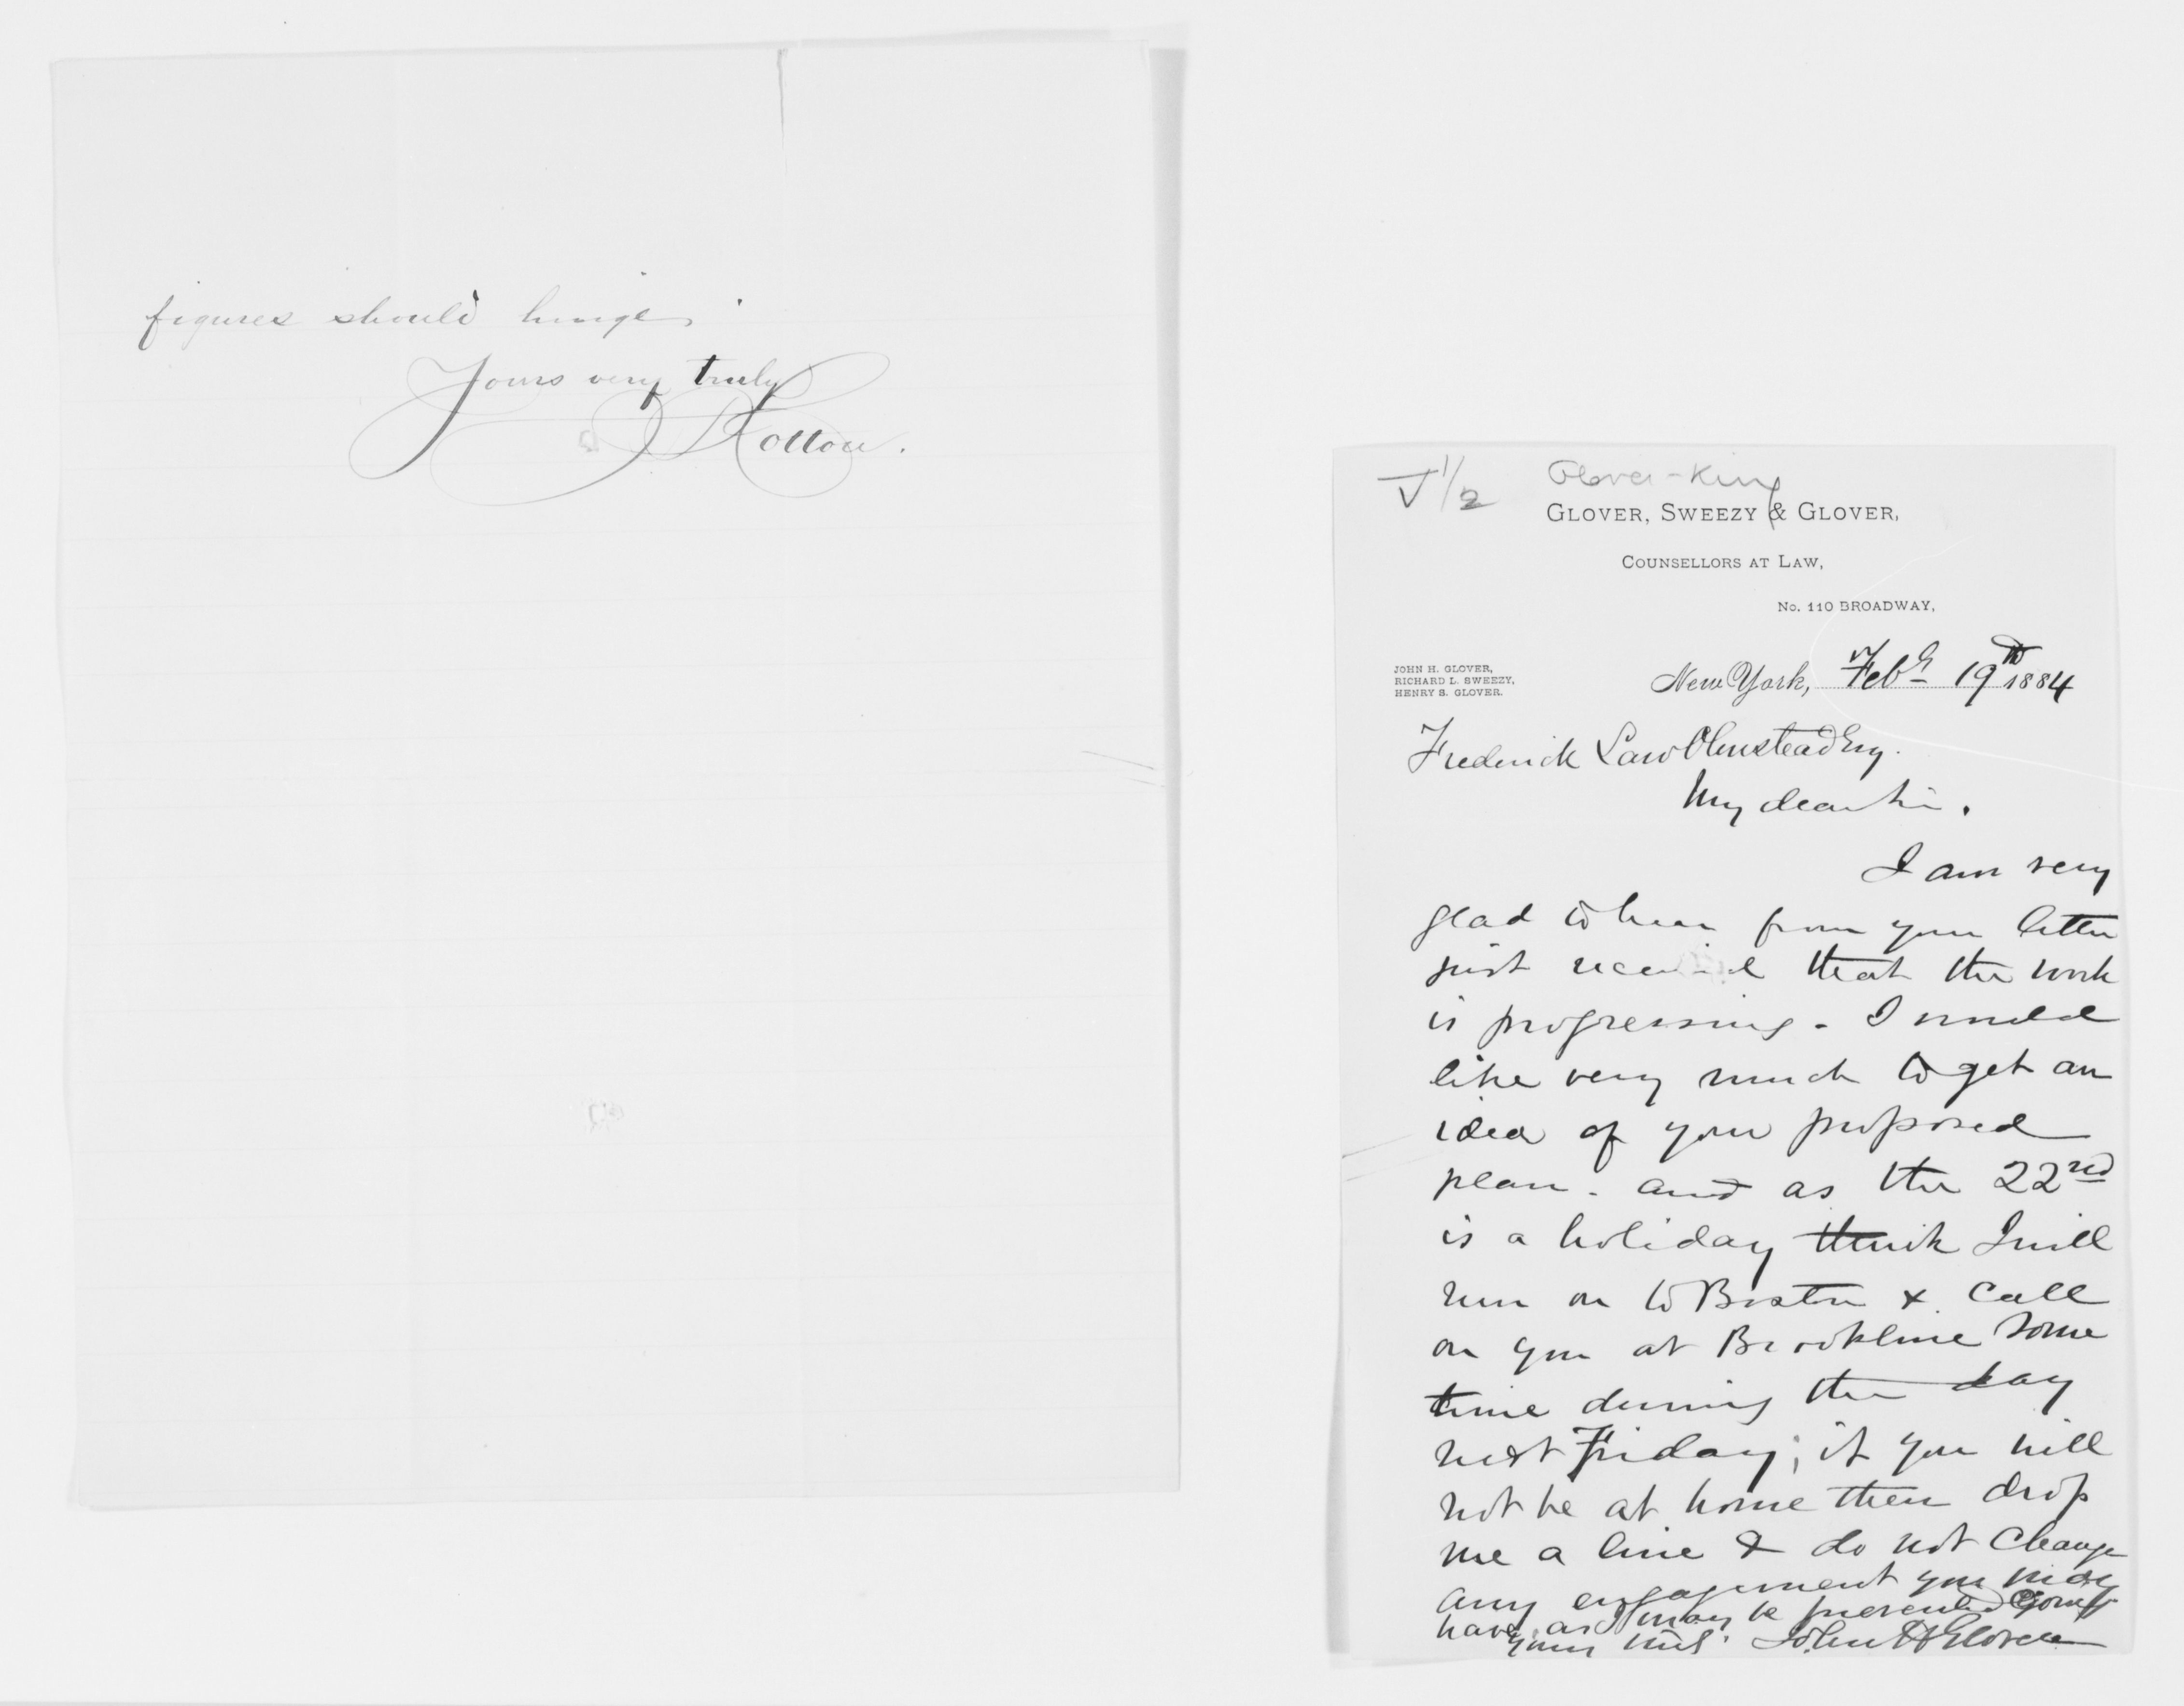 figures should hinge.
Yours very truly
Kottou.
√ 1/2
Glover - King
GLOVER, SWEEZY & GLOVER,
COUNSELLORS AT LAW,
No. 110 BROADWAY,
JOHN H. GLOVER,
RICHARD L. SWEEZY,
HENRY S. GLOVER.
New York, Feby 19th 1884
Frederick Law Olmstead Esq.
My dear Sir.
I am very
glad to hear from your letter
just received that the work
is progressing - I would
like very much to get an
idea of your proposed
plan - and as the 22nd
is a holiday think I will
run on to Boston & call
on you at Brookline some
time during the day
next Friday; if you will
not be at home then drop
me a line & do not change
any engagement you may
have, as I may be prevented going
yours truly John H Glover